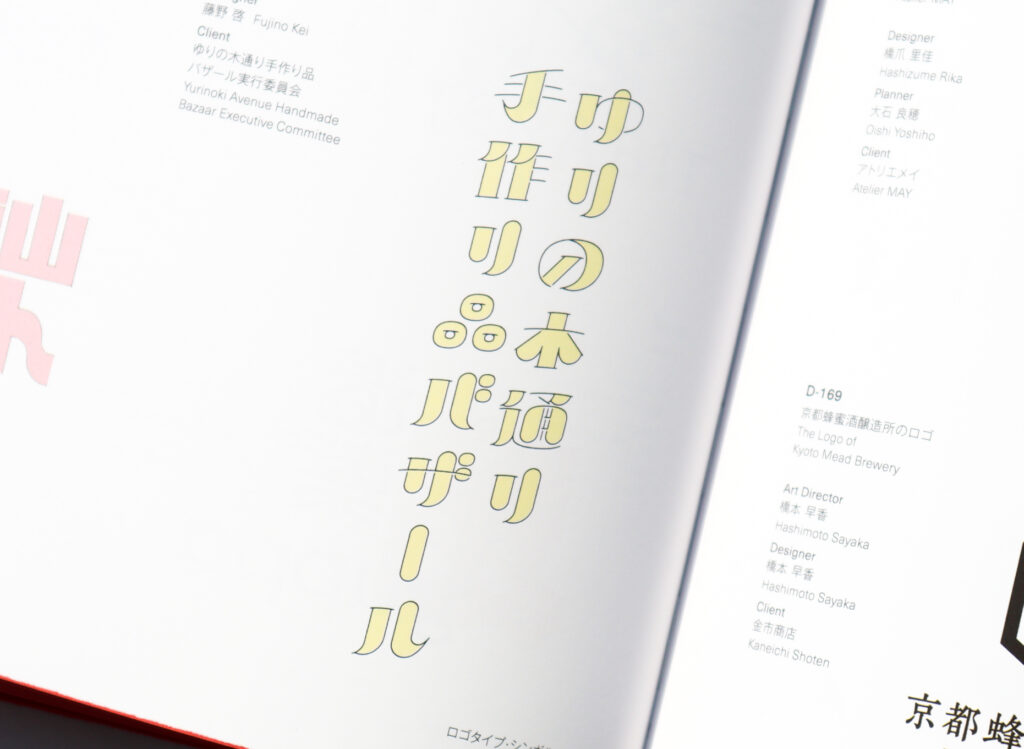 藤野 啓 Fujino Kei
Client
ゆりの木通り手作り品
バザール実行委員会
Yurinoki Avenue Handmade
Bazaar Executive Committee
ゆりの木通り
手作り品バザール
ロゴタイプ・シンボ
Atelier MAY
Designer
橋爪 里佳
Hashizume Rika
Planner
大石 良穂
Oishi Yoshiho
Client
アトリエメイ
Atelier MAY
D-169
京都蜂蜜酒醸造所のロゴ
The Logo of
Kyoto Mead Brewery
Art Director
橋本 早香
Hashimoto Sayaka
Designer
橋本 早香
Hashimoto Sayaka
Client
金市商店
Kaneichi Shoten
京都蜂